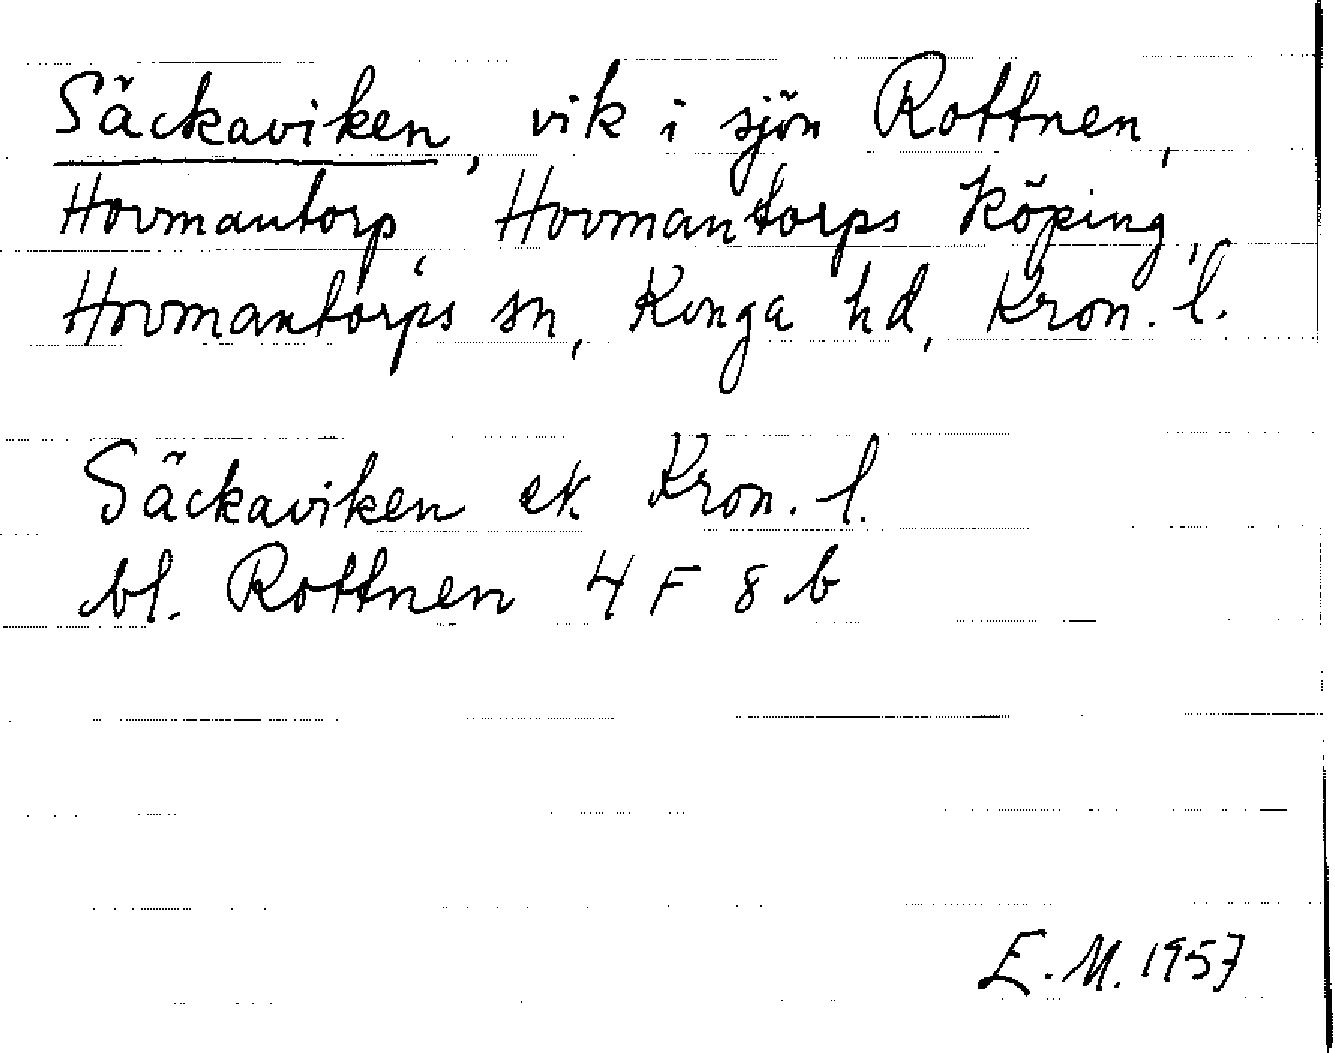 Säckaviken, vik i sjön Rottnen,
Hovmantorp, Hovmantorps köping,
Hovmantorps sn, Konga hd, Kron. l.
Säckaviken ek. Kron. l.
bl. Rottnen 4 F 8 b
E. M. 1957